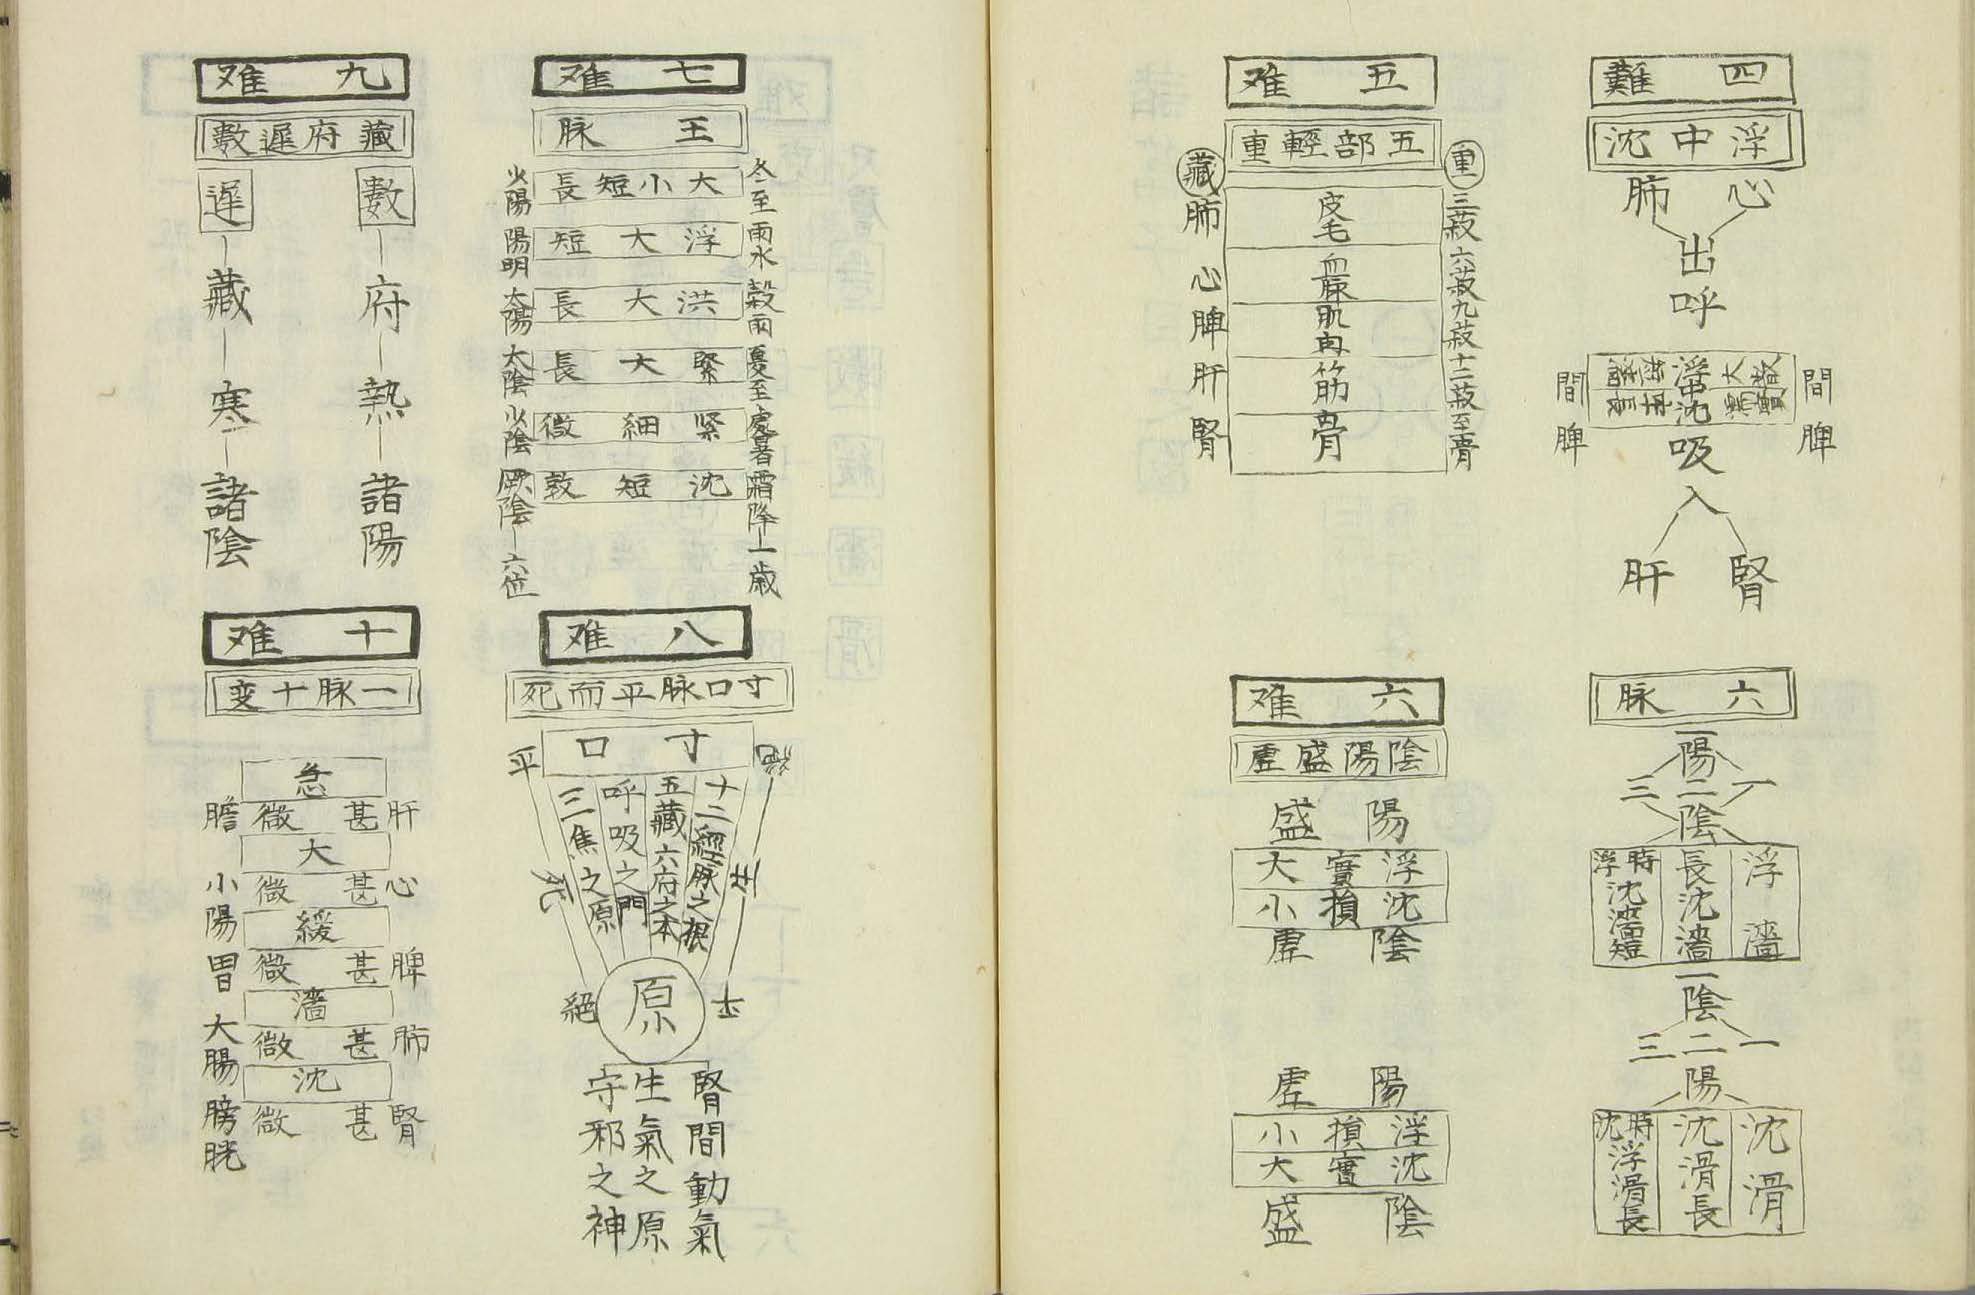 四難
浮中沈
心肺
出
呼
浮大散
中
沈
間脾
間脾
吸
入
腎肝
六脉
一陽
一二三
陰
浮濇
長沈濇
時浮沈濇短
一陰
一二三
陽
沈滑
沈滑長
時沈浮滑長
五难
五部輕重
重
三菽六菽九菽十二菽至骨
皮毛
血脈
肌肉
筋
骨
藏
肺心脾肝腎
六难
陰陽盛虛
陽盛
浮實大
沈損小
陰虛
陽虛
浮損小
沈實大
陰盛
七难
王脉
冬至雨水榖雨夏至處暑霜降一歲
大小短長
浮大短
洪大長
緊大長
緊細微
沈短敦
少陽陽明太陽太陰少陰厥陰六位
八难
寸口脉平而死
寸口
平
十二經脉之根
五藏六府之本
呼吸之門
三焦之原
生
死
絕
原
腎間動氣
生氣之原
守邪之神
九难
藏府遲數
數府熱諸陽
遲藏寒諸陰
十难
一脉十变
急
肝甚微膽
大
心甚微小腸
緩
脾甚微胃
濇
肺甚微大腸
沈
腎甚微膀胱